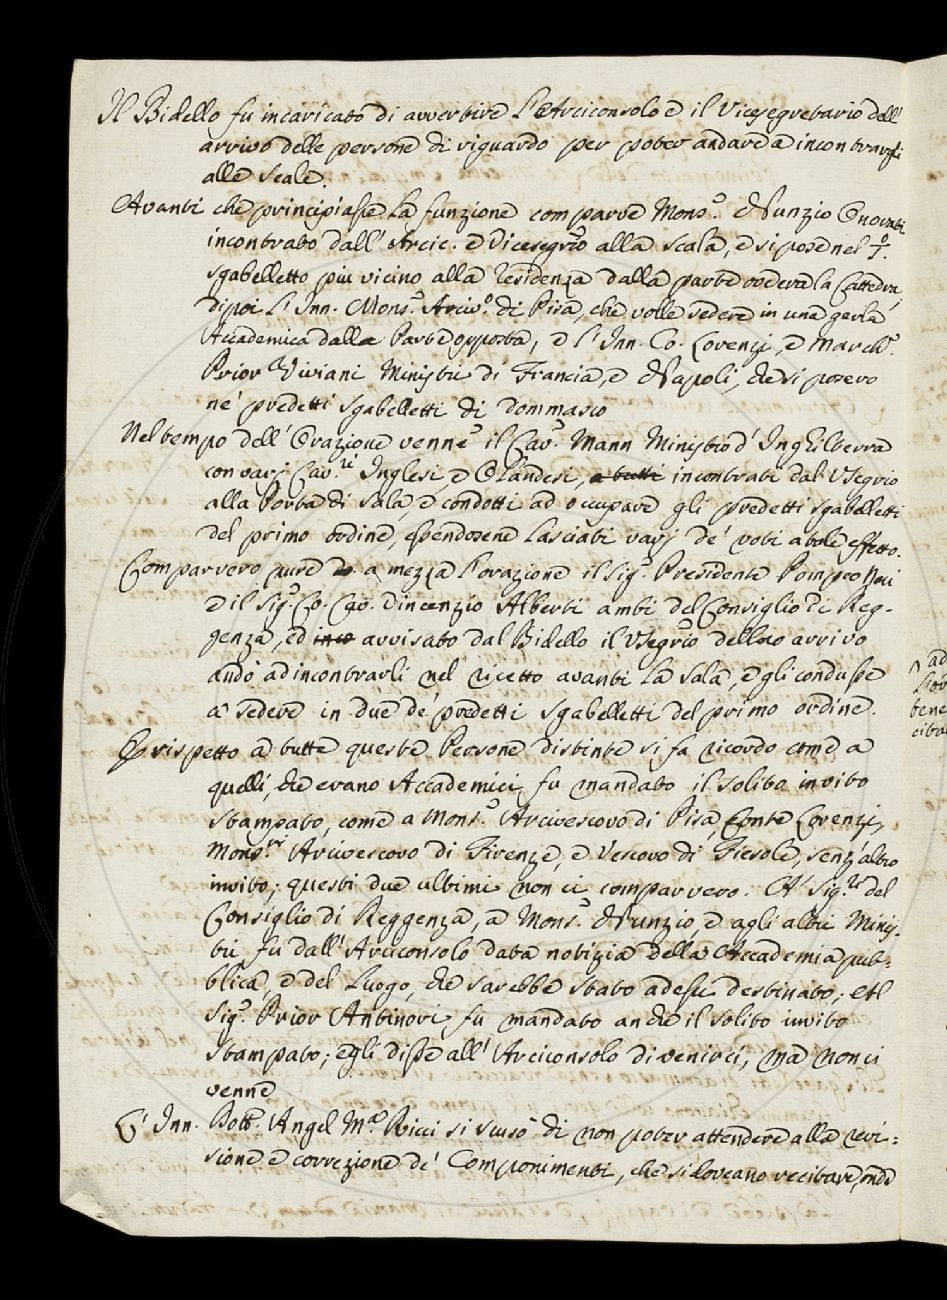 Il Bidello fu incaricato di avvertire l'Arciconsolo e il Vicesegretario dell'
arrivo delle persone di riguardo per poter andare a incontrargli
alle scale.
Avanti che principiasse la funzione comparve Mons.e Nunzio Onorati
incontrato dall'Arcic. e Vicesegrio alla scala, e si pose nel p.o
sgabelletto più vicino alla residenza dalla parte ov'era la Cattedra,
dipoi l'Inn. Mons.e Arciv.o di Pisa, che volle sedere in una gerla
Accademica dalla Parte opposta, e l'Inn. Co. Lorenzi, e March.e
Prior Viviani Ministri di Francia, e Napoli, che si posero
ne' predetti sgabelletti di dommasco
Nel tempo dell'Orazione venne il Cav.e Mann Ministro d'Inghilterra
con varj Cav.ri Inglesi e Olandesi, a tutti incontrati dal VSegrio
alla Porta di Sala, e condotti ad occupare gli predetti sgabelletti
del primo ordine, essendosene lasciati varj de' voti a tale effetto.
Comparvero pure a mezza l'orazione il Sig.e Presidente Pompeo Neri
e il Sig.e Co. Cao. Vincenzio Alberti ambi del Consiglio di Reg-
genza, ed inco avvisato dal Bidello il VSegrio dell'arrivo
andò ad incontrarli nel ricetto avanti la sala, e gli condusse
a sedere in due de' predetti sgabelletti del primo ordine.
E rispetto a tutte queste Persone distinte si fa ricordo come a
quelli, che erano Accademici fu mandato il solito invito
stampato, come a Mons.e Arcivescovo di Pisa, Conte Lorenzi,
Mons.re Arcivescovo di Firenze, e Vescovo di Fiesole, senz'altro
invito; questi due ultimi non ci comparvero. A' Sig.ri del
Consiglio di Reggenza, a Mons.e Nunzio, e agli altri Minis-
tri fu dall'Arciconsolo data notizia della Accademia pub-
blica, e del Luogo, che sarebbe stato ad essi destinato; Al
Sig.e Prior Antinori fu mandato anche il solito invito
stampato; egli disse all'Arciconsolo di venirci, ma non ci
venne
L'Inn. Dott.e Angel M.a Ricci si scusò di non poter attendere alla revi-
sione e correzione de' Componimenti, che si doveano recitare, onde
ad
bene